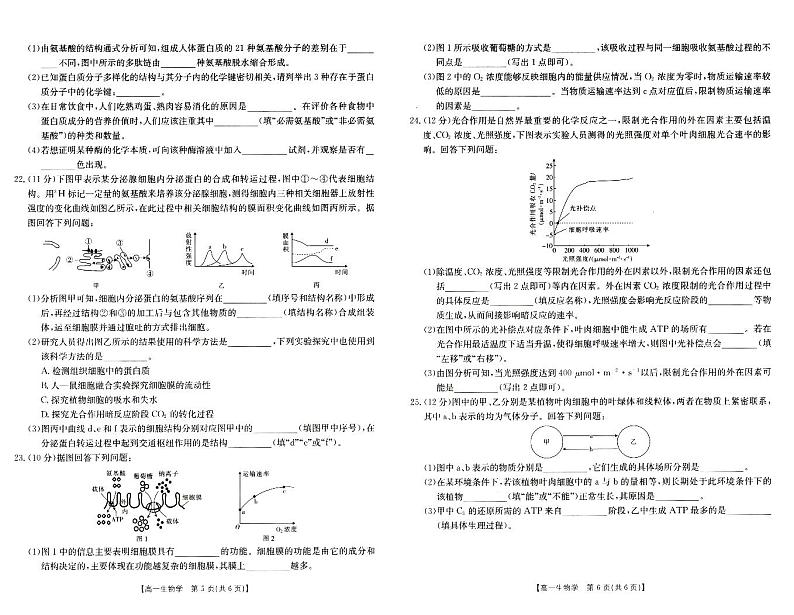 (1)由氨基酸的结构通式分析可知,组成人体蛋白质的 21 种氨基酸分子的差别在于
不同,图中所示的多肽链由 种氨基酸脱水缩合形成。
(2)已知蛋白质分子多样化的结构与其分子内的化学键密切相关,请列举出 3 种存在于蛋白
质分子中的化学键: 。
(3)在日常饮食中,人们吃熟鸡蛋、熟肉容易消化的原因是 。在评价各种食物中
蛋白质成分的营养价值时,人们应该注重其中 (填“必需氨基酸”或“非必需氨
基酸”)的种类和数量。
(4)若想证明某种酶的化学本质,可向该种酶溶液中加入 试剂,并观察是否有
色出现。
22.(11 分)下图甲表示某分泌腺细胞内分泌蛋白的合成和转运过程,图中①~④代表细胞结
构。用³H 标记一定量的氨基酸来培养该分泌腺细胞,测得细胞内三种相关细胞器上放射性
强度的变化曲线如图乙所示,在此过程中相关细胞结构的膜面积变化曲线如图丙所示。据
图回答下列问题:
① ② ③
④
甲
放射性强度
a b c
时间
乙
膜面积
d
e
f
时间
丙
(1)分析图甲可知,细胞内分泌蛋白的氨基酸序列在 (填序号和结构名称)中形成
后,再经过结构②和③的加工后与包含其他物质的 (填结构名称)合成组装
体,运至细胞膜并通过胞吐的方式排出细胞。
(2)研究人员得出图乙所示的结果使用的科学方法是 ,下列实验探究中也使用到
该科学方法的是 。
A. 检测组织细胞中的蛋白质
B. 人—鼠细胞融合实验探究细胞膜的流动性
C. 探究植物细胞的吸水和失水
D. 探究光合作用暗反应阶段 CO₂ 的转化过程
(3)图丙中曲线 d、e 和 f 表示的细胞结构分别对应图甲中的 (填图甲中序号),在
分泌蛋白转运过程中起到交通枢纽作用的是结构 (填“d”“e”或“f”)。
23.(10 分)据图回答下列问题:
氨基酸 葡萄糖 钠离子
载体 细胞膜
外
内
ATP 载体
图 1
运输速率
a
b
c
O
O₂ 浓度
图 2
(1)图 1 中的信息主要表明细胞膜具有 的功能。细胞膜的功能是由它的成分和
结构决定的,主要体现在功能越复杂的细胞,其膜上 越多。
【高一生物学 第 5 页(共 6 页)】
(2)图 1 所示吸收葡萄糖的方式是 ,该吸收过程与同一细胞吸收氨基酸过程的不
同点是 (写出 1 点即可)。
(3)图 2 中的 O₂ 浓度能够反映细胞内的能量供应情况,当 O₂ 浓度为零时,物质运输速率较
低的原因是 。当物质运输速率达到 c 点对应值后,限制物质运输速率
的因素是 。
24.(12 分)光合作用是自然界最重要的化学反应之一,限制光合作用的外在因素主要包括温
度、CO₂ 浓度、光照强度,下图表示实验人员测得的光照强度对单个叶肉细胞光合速率的影
响。回答下列问题:
光合作用吸收 CO₂ 量/
(μmol·m⁻²·s⁻¹)
25
20
15
10
5
0
-5
-10
光补偿点
细胞呼吸速率
0 200 400 600 800 1000
光照强度/(μmol·m⁻²·s⁻¹)
(1)除温度、CO₂ 浓度、光照强度等限制光合作用的外在因素以外,限制光合作用的因素还包
括 (写出 2 点即可)等内在因素。外在因素 CO₂ 浓度限制的光合作用过程中
的具体反应是 (填反应名称),光照强度会影响光反应阶段的 等物
质生成,从而间接影响暗反应的速率。
(2)在图中所示的光补偿点对应条件下,叶肉细胞中能生成 ATP 的场所有 。若在
光合作用最适温度下适当升温,使得细胞呼吸速率增大,则图中光补偿点会 (填
“左移”或“右移”)。
(3)由图分析可知,当光照强度达到 400 μmol·m⁻²·s⁻¹以后,限制光合作用的外在因素可
能是 (写出 2 点即可)。
25.(12 分)图中的甲、乙分别是某植物叶肉细胞中的叶绿体和线粒体,两者在物质上紧密联系,
其中 a、b 表示的均为气体分子。回答下列问题:
甲 a b 乙
(1)图中 a、b 表示的物质分别是 ,它们生成的具体场所分别是 。
(2)在某环境条件下,若该植物叶肉细胞中的 a 与 b 的量相等,则长期处于此环境条件下的
该植物 (填“能”或“不能”)正常生长,其原因是 。
(3)甲中 C₃ 的还原所需的 ATP 来自 阶段,乙中生成 ATP 最多的是
(填具体生理过程)。
【高一生物学 第 6 页(共 6 页)】